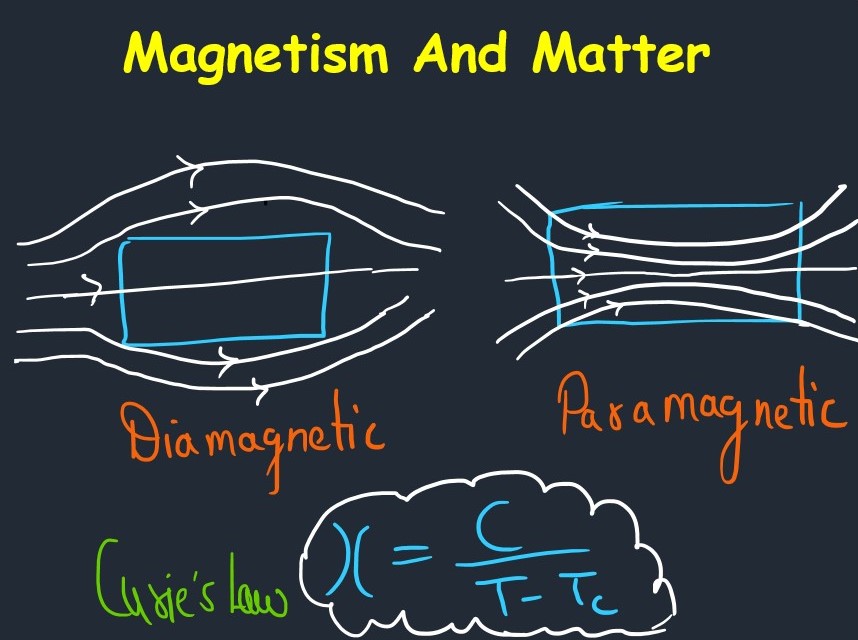 Magnetism And Matter
Diamagnetic
Paramagnetic
Curie's Law
χ = C / T - Tc